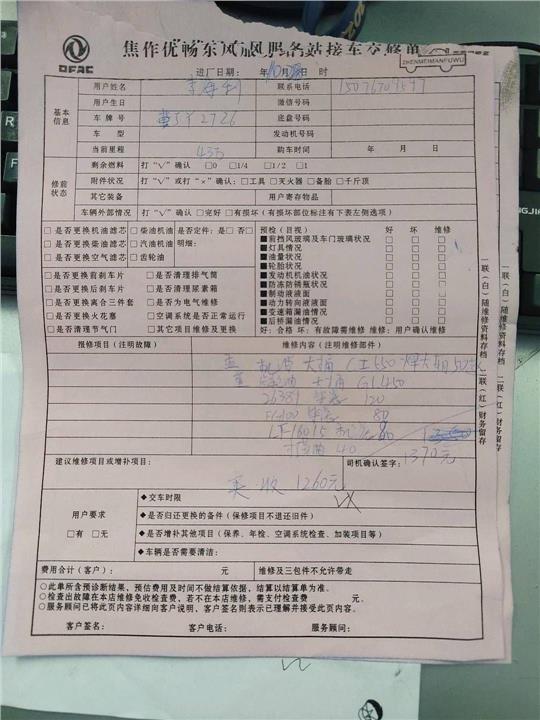 DFAC
焦作优畅东风 服务站接车交修单
ZHENMEIMANFUWU
进厂日期: 年 月 日 时
基本信息
用户姓名 联系电话
用户生日 微信号码
车牌号 底盘号码
车型 发动机号码
当前里程 43万 购车时间 年 月 日
修前状态
剩余燃料 打“√”确认 □0 □1/4 □1/2 □1
附件状况 打“√”或打“×”确认:□工具 □灭火器 □备胎 □千斤顶
其它装备 用户寄存物品
车辆外部情况 打“√”确认 □完好 □有损坏(有损坏部位标注有下表左侧选项)
□是否更换机油滤芯 □柴油机油 是否定件:□是 □否
□是否更换柴油滤芯 □汽油机油 明细:
□是否更换空气滤芯 □齿轮油
□是否更换前刹车片 □是否清理排气筒
□是否更换后刹车片 □是否清理尿素箱
□是否更换离合三件套 □是否为电气维修
□是否更换火花塞 □空调系统是否正常运行
□是否清理节气门 □其它项目维修及更换
预检(目视) 好 坏 维修
■前挡风玻璃及车门玻璃状况 □ □ □
■灯具情况 □ □ □
■油量状况 □ □ □
■轮胎状况 □ □ □
■发动机机油状况 □ □ □
■防冻防锈瓶状况 □ □ □
■制动液液面 □ □ □
■动力转向液液面 □ □ □
■变速箱漏油情况 □ □ □
■后桥漏油情况 □ □ □
好:合格 坏:有故障需维修 维修:用户确认维修
报修项目(注明故障) 维修内容(注明维修部件)
450
120
80
40
1370元
建议维修项目或增补项目: 司机确认签字:
实收 1260元
用户要求
□有 □无
◆交车时限
◆是否归还更换的备件(保修项目不退还旧件)
◆是否增补其他项目(保养、年检、空调系统检查、加装项目等)
◆车辆是否需要清洁:
费用合计(客户): 元 维修及三包件不允许带走
○此单所含预诊断结果,预估费用及时间不做结算依据,结算以结算单为准。
○检查出故障在本店维修免收检查费,若不在本店维修,需支付检查费 元。
○服务顾问已将此页内容详细向客户说明,客户签名则表示已理解并接受此页内容。
客户签名: 客户电话: 服务顾问:
一联(白)随维修资料存档 二联(红)财务留存
一联(白)随维修资料存档 二联(红)财务留存